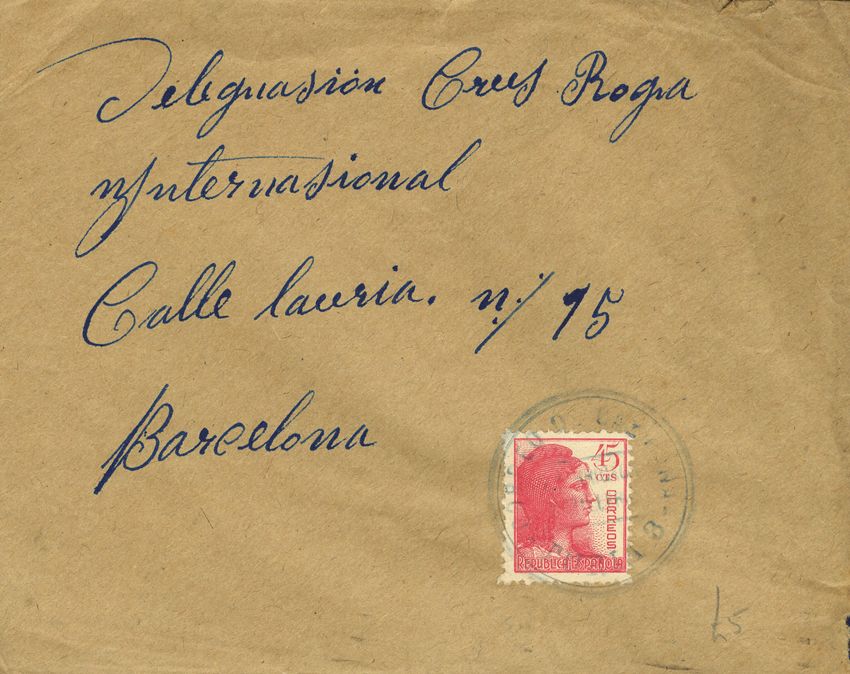 Deleguasión Crus Rogia
Internasional
Calle lauria. n./ 95
Barcelona
45
CTS
CORREOS
REPUBLICA ESPAÑOLA